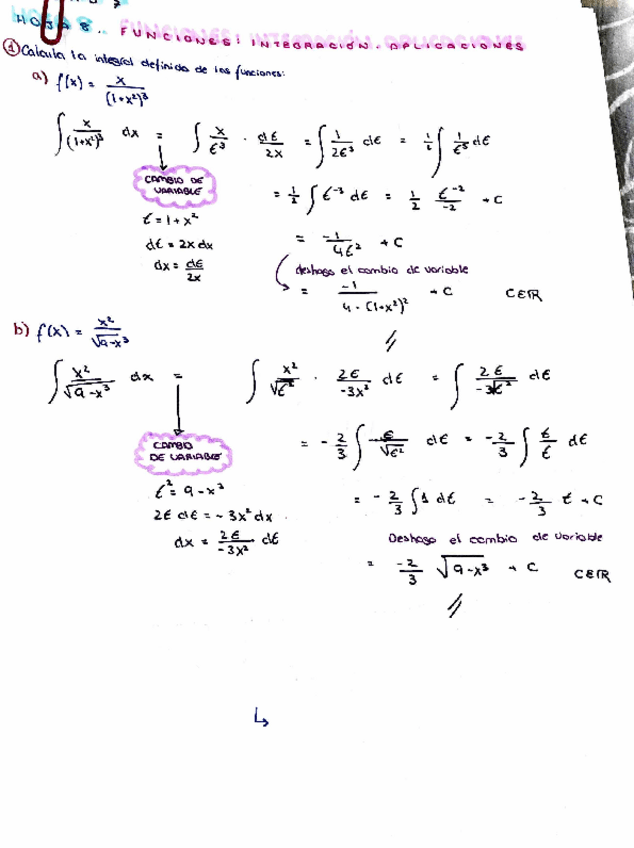 HOJA 8.. FUNCIONES: INTEGRACIÓN. APLICACIONES
① Calcula la integral definida de las funciones:
a) f(x) = x/(1+x²)³
∫ x/(1+x²)³ dx = ∫ x/t³ · dt/2x = ∫ 1/2t³ dt = 1/2 ∫ 1/t³ dt
CAMBIO DE
VARIABLE
= 1/2 ∫ t⁻³ dt = 1/2 t⁻²/-2 + C
t = 1+x²
dt = 2x dx
dx = dt/2x
= -1/4t² + C
deshago el cambio de variable
= -1/4·(1+x²)² + C C∈ℝ
b) f(x) = x²/√9-x³
∫ x²/√9-x³ dx = ∫ x²/√t² · 2t/-3x² dt = ∫ 2t/-3t dt
CAMBIO
DE VARIABLE
= -2/3 ∫ t/√t² dt = -2/3 ∫ t/t dt
t² = 9-x³
2t dt = -3x² dx
dx = 2t/-3x² dt
= -2/3 ∫ 1 dt = -2/3 t + C
Deshago el cambio de variable
= -2/3 √9-x³ + C C∈ℝ